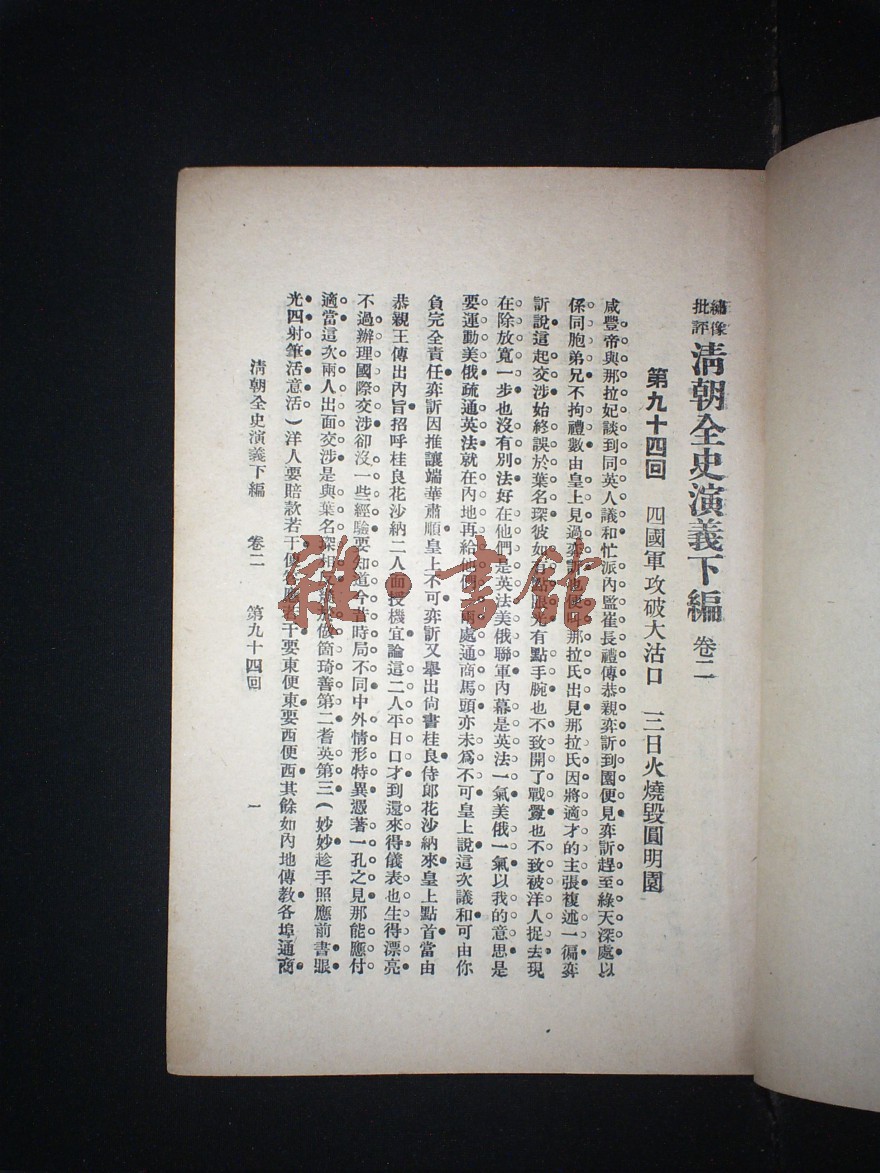 繡像批評 清朝全史演義下編 卷二
第九十四回 四國軍攻破大沽口 三日火燒毀圓明園
咸豐帝與那拉妃談到同英人議和忙派內監崔長禮傳恭親奕訢到園便見奕訢趕至綠天深處以
係同胞弟兄不拘禮數由皇上見過奕訢也便叫那拉氏出見那拉氏因將適才的主張複述一徧奕
訢說這起交涉始終誤於葉名琛彼如有點眼光有點手腕也不致開了戰釁也不致被洋人捉去現
在除放寬一步也沒有別法好在他們是英法美俄聯軍內幕是英法一氣美俄一氣以我的意思是
要運動美俄疏通英法就在內地再給他個兩處通商馬頭亦未爲不可皇上說這次議和可由你
負完全責任奕訢因推讓端華肅順皇上不可奕訢又舉出尙書桂良侍郎花沙納來皇上點首當由
恭親王傳出內旨招呼桂良花沙納二人面授機宜論這二人平日口才到還來得儀表也生得漂亮
不過辦理國際交涉卻沒一些經驗要知道今昔時局不同中外情形特異憑著一孔之見那能應付
適當這次兩人出面交涉是與葉名琛相反做箇琦善第二耆英第三(妙妙趁手照應前書眼
光四射筆活意活)洋人要賠款若干便應若干要東便東要西便西其餘如內地傳教各埠通商
清朝全史演義下編 卷二 第九十四回 一
雜·書館